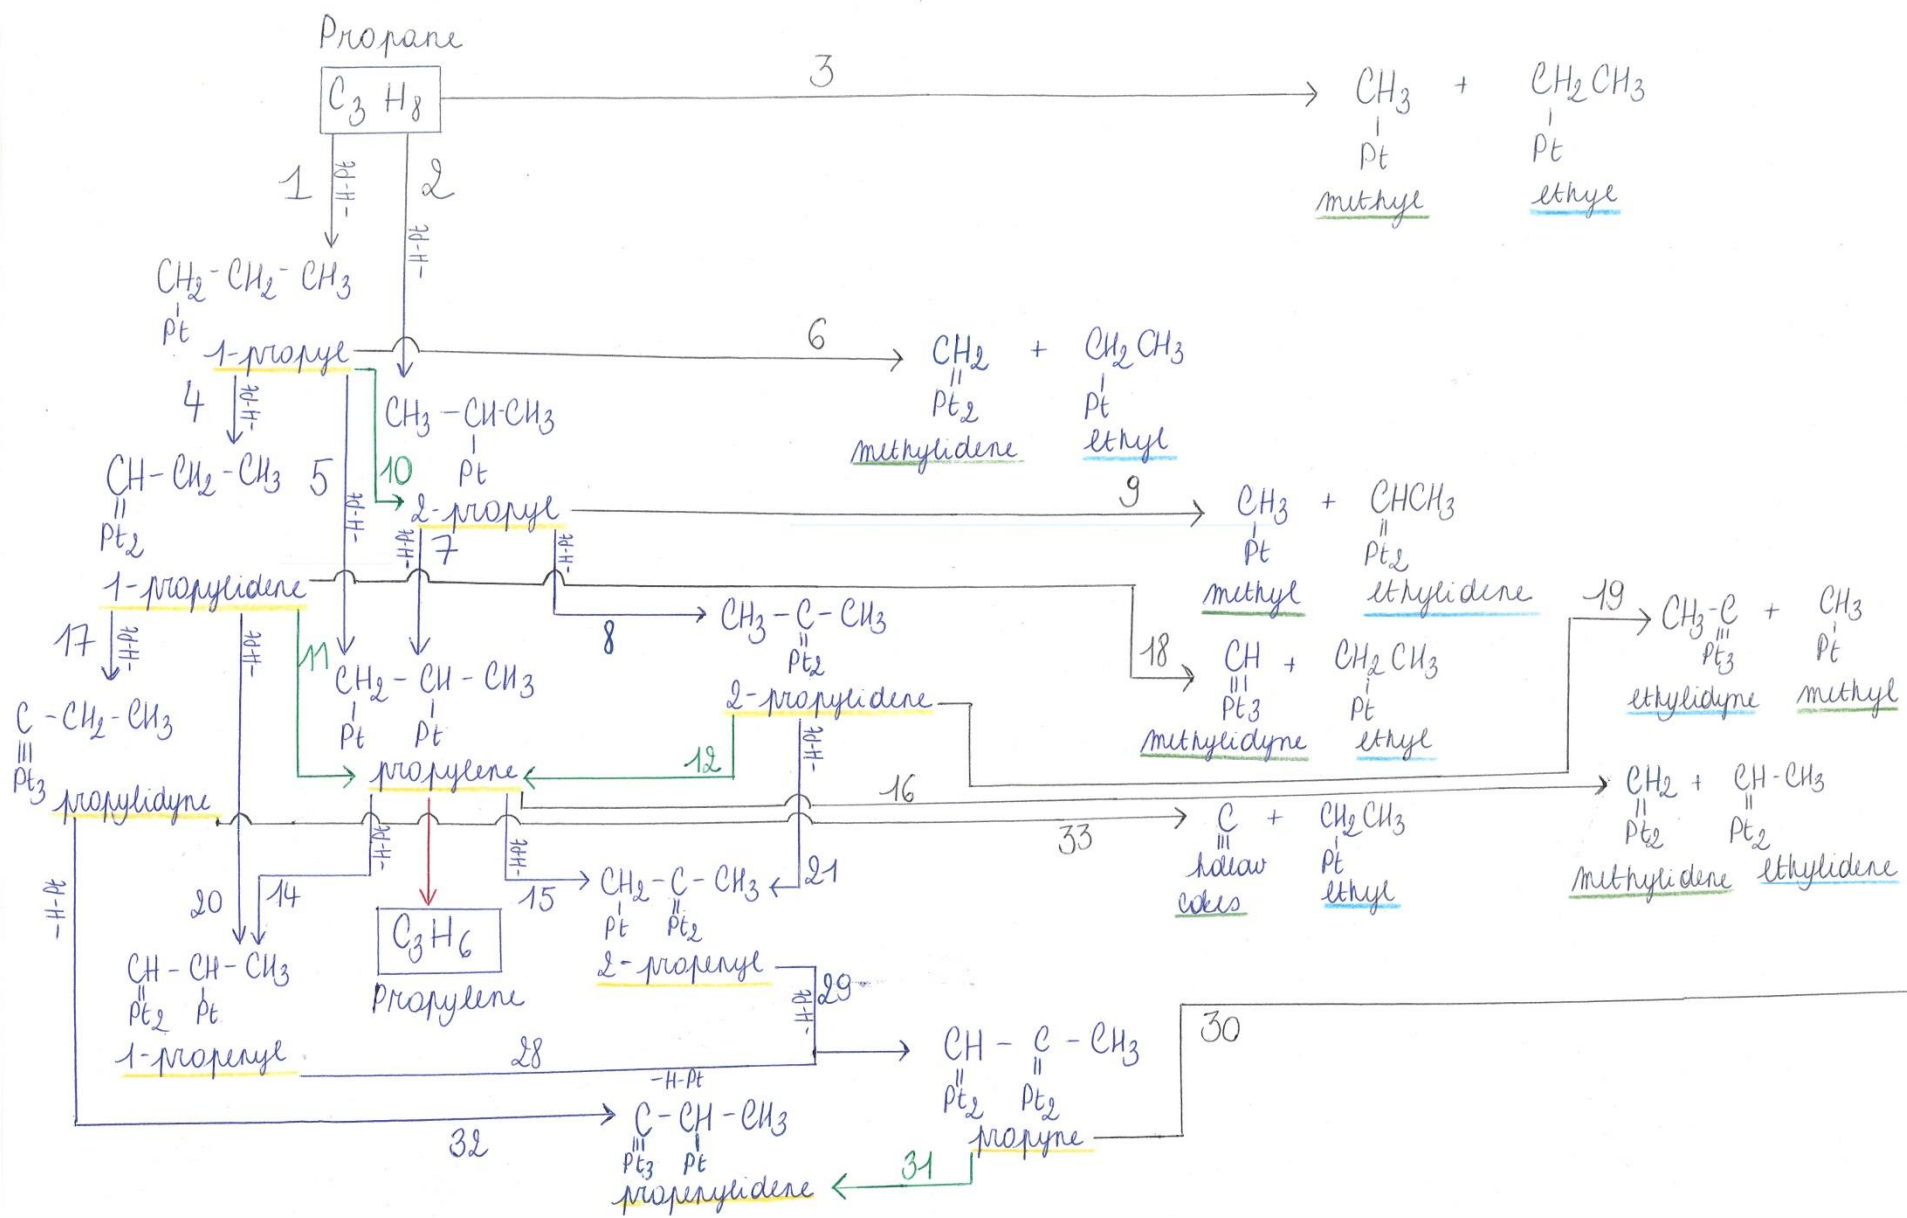 Propane
C3 H8
3
CH3 + CH2CH3
Pt Pt
methyl ethyl
1 -H-Pt 2 -H-Pt
CH2-CH2-CH3
Pt
1-propyl
6
CH2 + CH2CH3
Pt2 Pt
methylidene ethyl
4 -H-Pt
CH3-CH-CH3
Pt
2-propyl
10
5 -H-Pt
CH-CH2-CH3
Pt2
1-propylidene
9
CH3 + CHCH3
Pt Pt2
methyl ethylidene
-H-Pt 7 -H-Pt
8
CH3-C-CH3
Pt2
2-propylidene
18
CH + CH2CH3
Pt3 Pt
methylidyne ethyl
19
CH3-C + CH3
Pt3 Pt
ethylidyne methyl
17 -H-Pt -H-Pt 11
CH2-CH-CH3
Pt Pt
propylene
12
-H-Pt
C-CH2-CH3
Pt3
propylidyne
16
CH2 + CH-CH3
Pt2 Pt2
methylidene ethylidene
33
C + CH2CH3
hollow Pt
cokes ethyl
-H-Pt
20 14 -H-Pt
-H-Pt 15
21
CH2-C-CH3
Pt Pt2
2-propenyl
C3H6
Propylene
CH-CH-CH3
Pt2 Pt
1-propenyl
28
-H-Pt
29 -H-Pt
CH-C-CH3
Pt2 Pt2
propyne
30
32
C-CH-CH3
Pt3 Pt
propenylidene
31